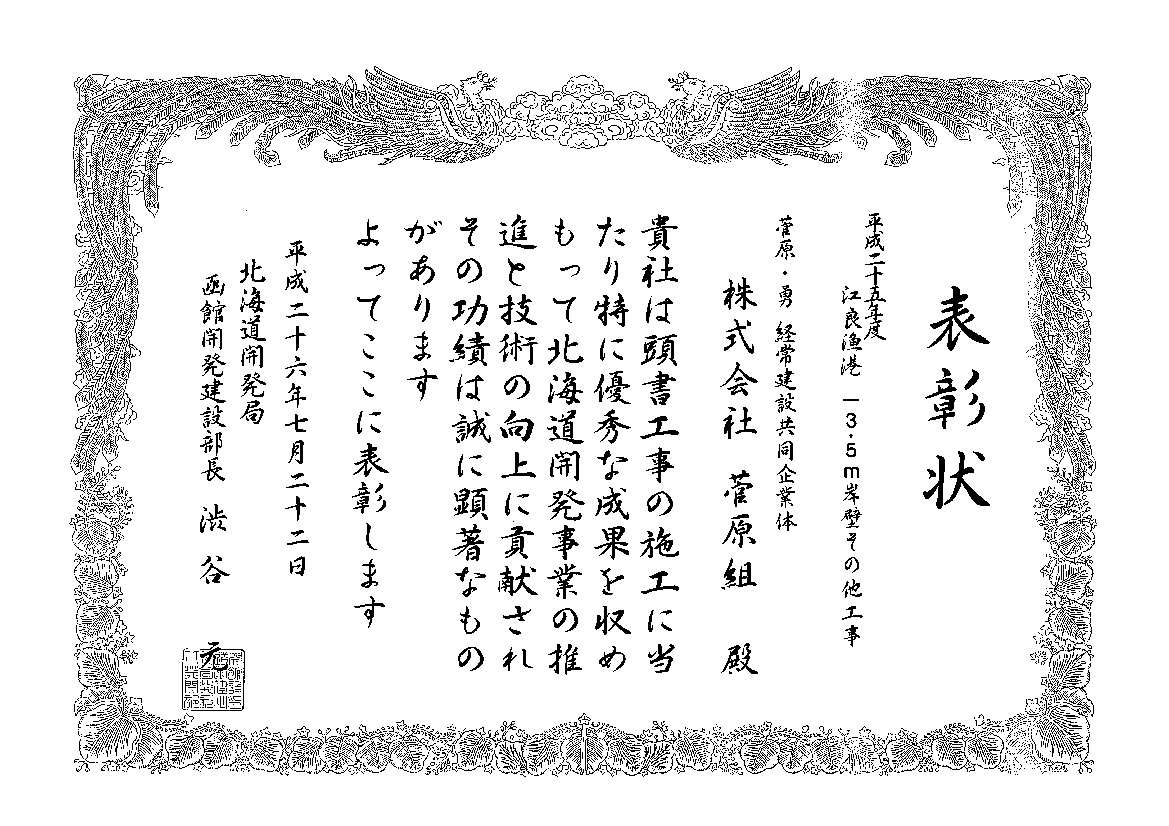 表彰状
平成二十五年度
江良漁港 －３.５ｍ岸壁その他工事
菅原・勇 経常建設共同企業体
株式会社 菅原組 殿
貴社は頭書工事の施工に当
たり特に優秀な成果を収め
もって北海道開発事業の推
進と技術の向上に貢献され
その功績は誠に顕著なもの
があります
よってここに表彰します
平成二十六年七月二十二日
北海道開発局
函館開発建設部長 渋谷 元